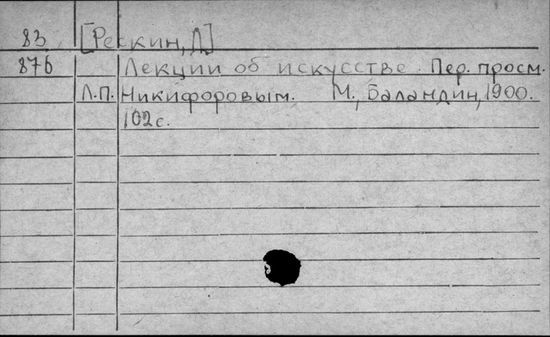 83 [Рескин, Д]
876 Лекции об искусстве. Пер. просм.
Л.П. Никифоровым. М., Баландин, 1900.
102 с.